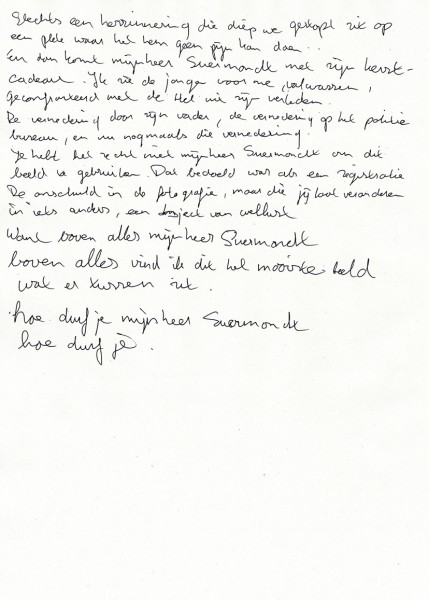 Slechts een herrinnering die diep we gestopt zit op
een plek waar het hem geen pijn kan doen...
En dan komt mijnheer Suermondt met zijn kerst-
cadeau. Ik zie de jongen voor me, volwassen,
geconfronteerd met de Hel uit zijn verleden.
De vernedering door zijn vader, de vernedering op het politie
bureau, en nu nogmaals die vernedering.
Je hebt het recht niet mijnheer Suermondt om dit
beeld te gebruiken. Dat bedoeld was als een registratie
De onschuld in de fotografie, maar die jij laat veranderen
in iets anders, een object van wellust
Want boven alles mijnheer Suermondt
boven alles vind ik dit het mooiste beeld
wat er tussen zit.
hoe durf je mijnheer Suermondt
hoe durf je.